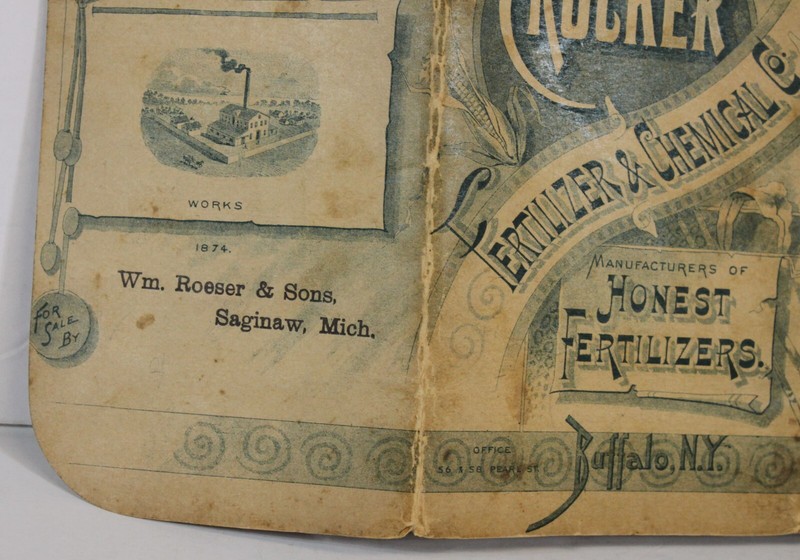 WORKS
1874.
FOR
SALE
BY
Wm. Roeser & Sons,
Saginaw, Mich.
CROCKER
FERTILIZER & CHEMICAL CO.
MANUFACTURERS OF
HONEST
FERTILIZERS.
OFFICE
56 & 58 PEARL ST.
Buffalo, N.Y.